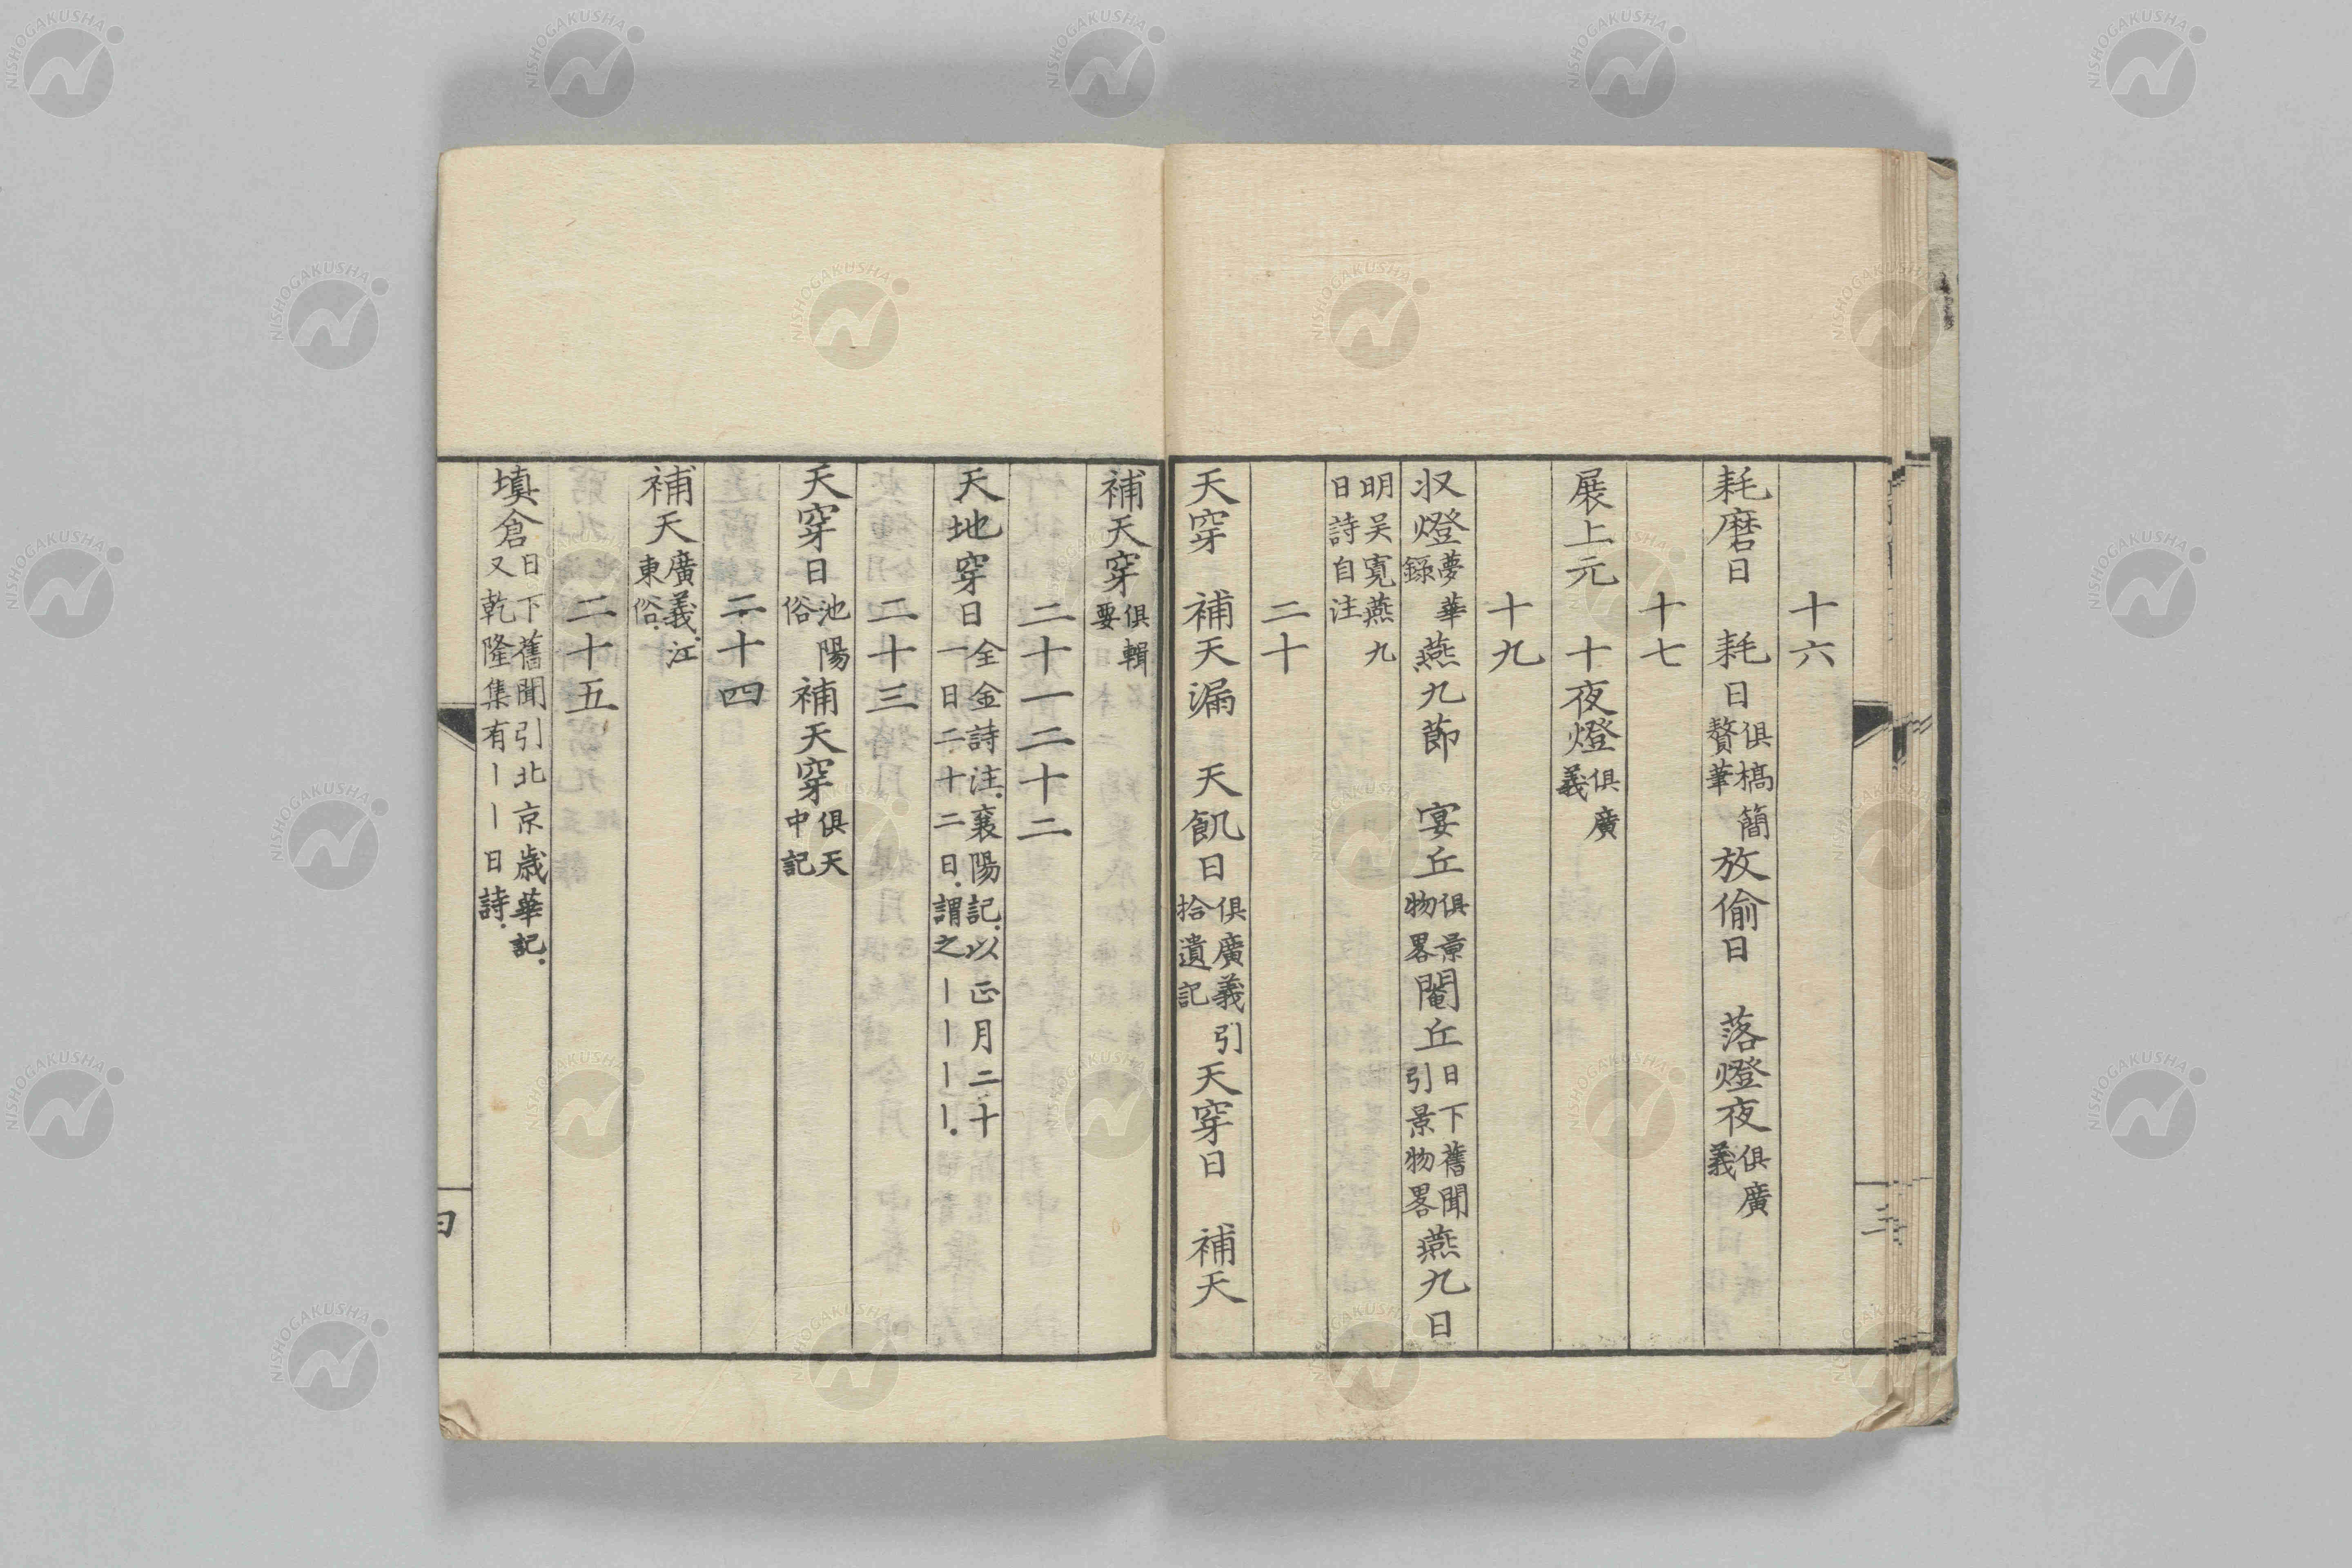 十六
耗磨日　耗日俱槁簡贅筆放偷日　落燈夜俱廣義
十七
展上元　十夜燈俱廣義
十九
収燈夢華錄燕九節　宴丘俱景物畧閹丘日下舊聞引景物畧燕九日
明吴寬燕九日詩自注
二十
天穿　補天漏　天飢日俱廣義引拾遺記天穿日　補天
補天穿俱輯要
二十一二十二
天地穿日全金詩注.襄陽記.以正月二十一日二十二日.謂之｜｜｜｜.
二十三
天穿日池陽俗補天穿俱天中記
二十四
補天廣義.江東俗.
二十五
填倉日下舊聞引北京歲華記.又乾隆集有｜｜｜日詩.
三
NISHOGAKUSHA